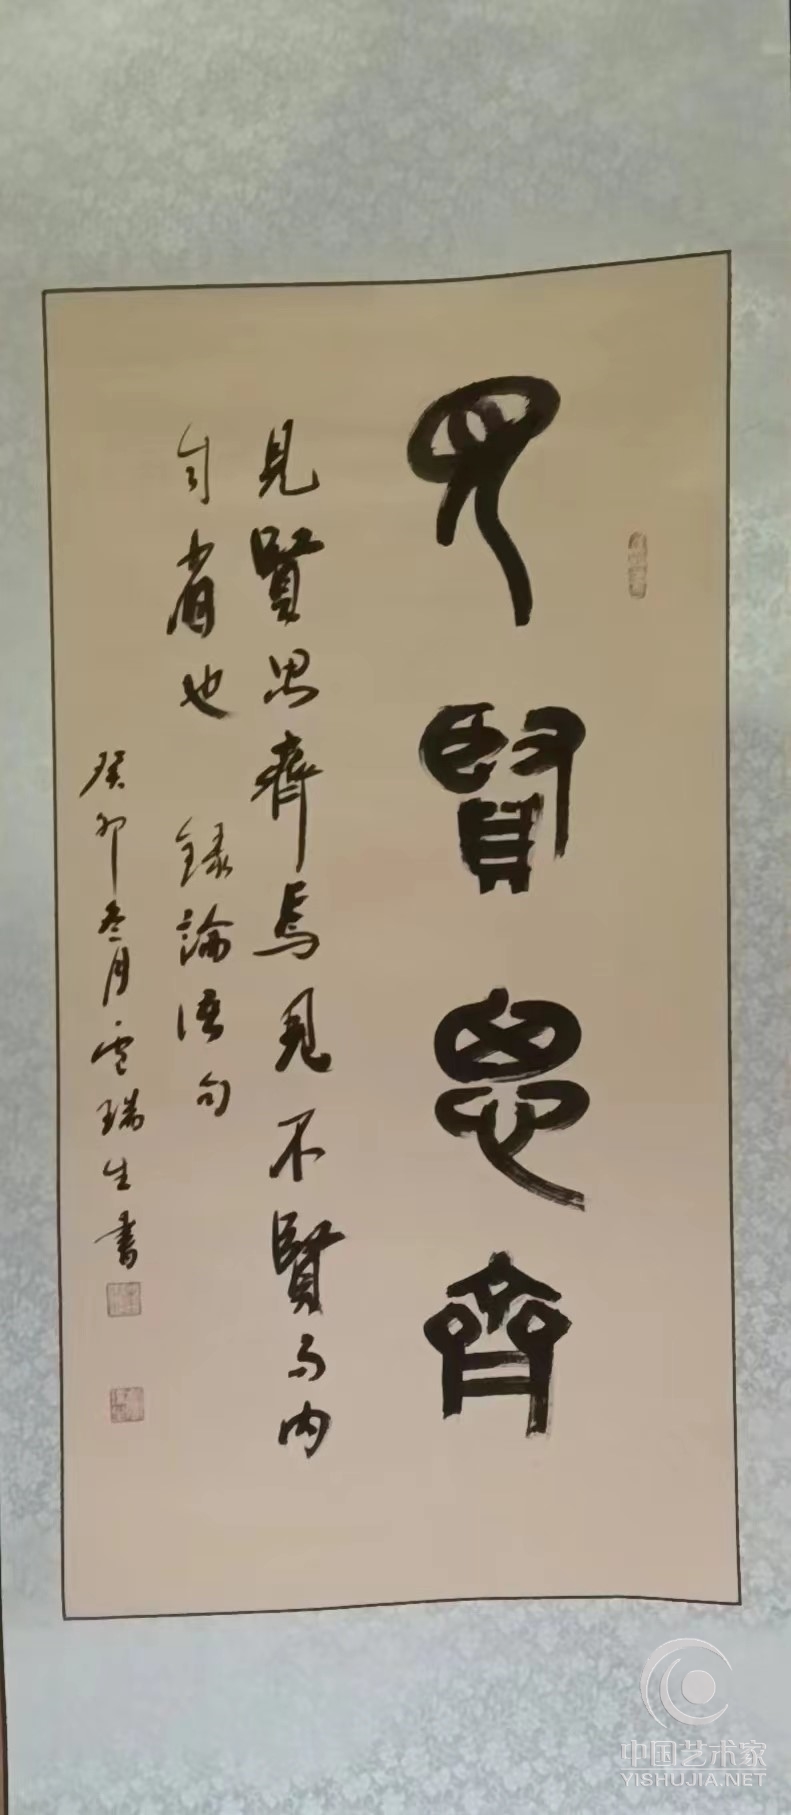 見賢思齊
見賢思齊焉見不賢而内
自省也 録論語句
癸卯冬月雲瑞生書
中国艺术家
YISHUJIA.NET